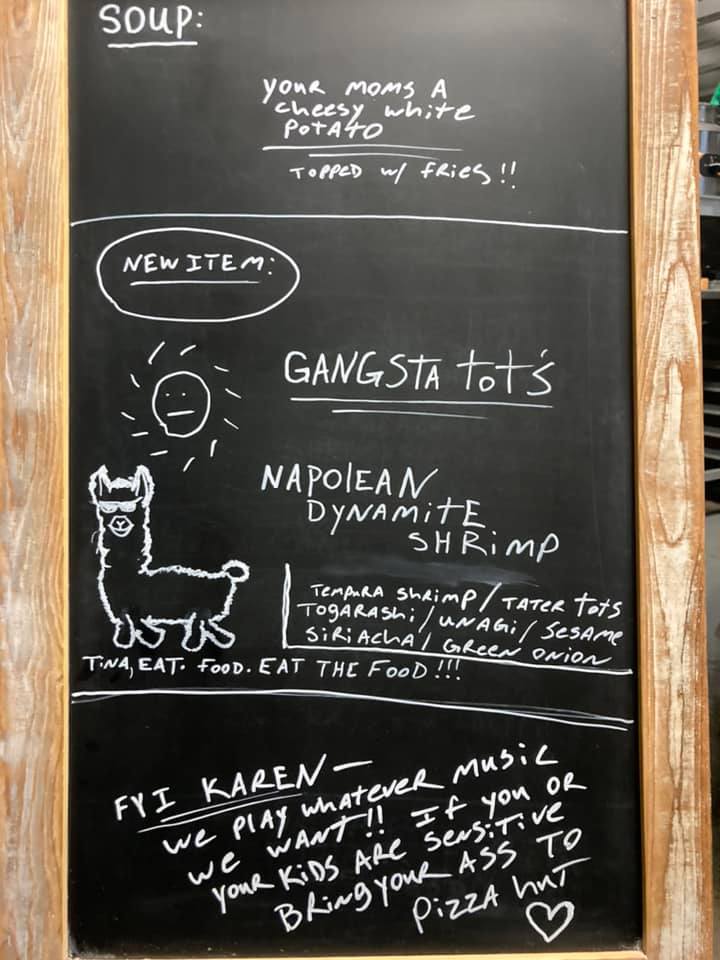 SOUP:
YOUR MOMS A
CHEESY WHITE
POTATO
TOPPED W/ FRIES!!
NEW ITEM:
GANGSTA tot's
NAPOLEAN
DYNAMITE
SHRIMP
TEMPURA SHRIMP/ TATER tots
TOGARASHI/ UNAGI/ SESAME
SIRIACHA/ GREEN ONION
TINA, EAT. FOOD. EAT THE FOOD!!!
FYI KAREN—
WE PLAY WHATEVER MUSIC
WE WANT!! IF YOU OR
YOUR KIDS ARE SENSITIVE
BRING YOUR ASS TO
PIZZA HUT